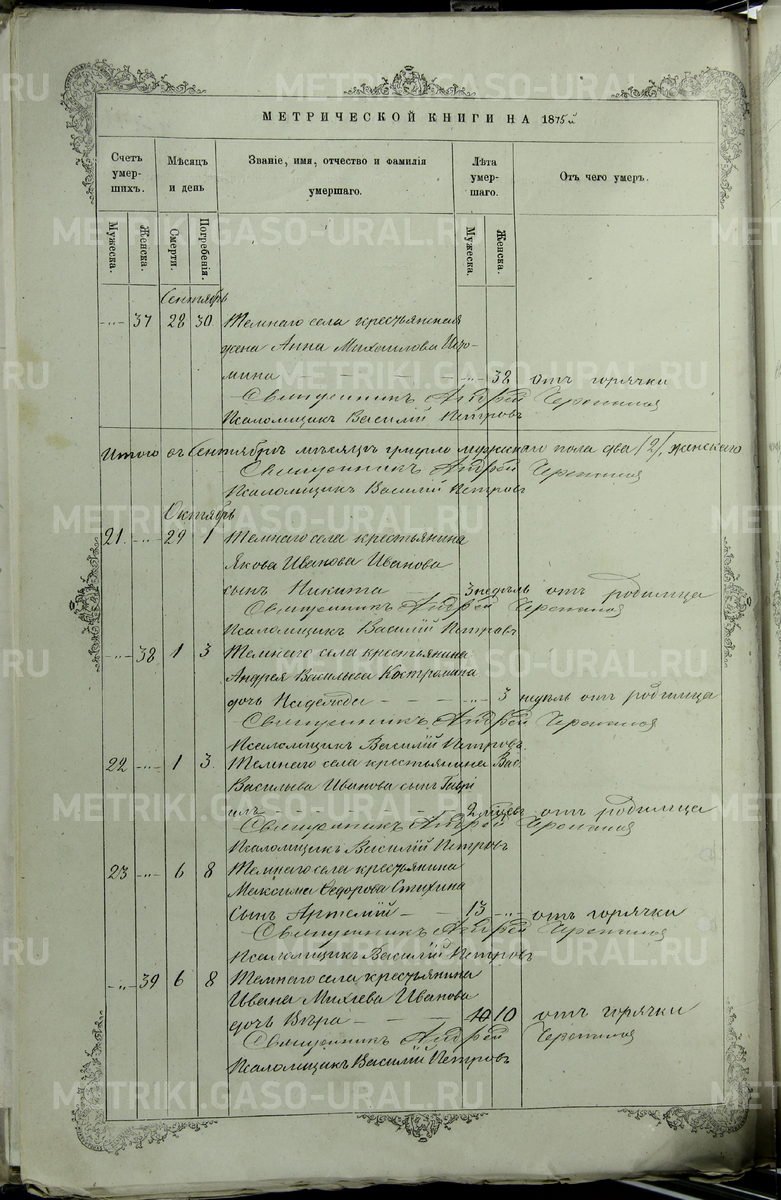 МЕТРИЧЕСКОЙ КНИГИ НА 1875й
Счетъ умер- шихъ. Мѣсяцъ и день Званіе, имя, отчество и фамилія умершаго. Лѣта умер- шаго. Отъ чего умеръ.
Мужеска. Женска. Смерти. Погребенія. Мужеска. Женска.
Сентябрь
-"- 37 28 30 Темнаго села крестьянская
жена Анна Михаилова
мина -"- 38 отъ горячки
Священникъ Андрей
Псаломщикъ Василій Петровъ
Итого въ Сентябрѣ мѣсяцѣ умерло мужескаго пола два /2/, женскаго
Священникъ Андрей
Псаломщикъ Василій Петровъ
Октябрь
21 -"- 29 1 Темнаго села крестьянина
Якова Иванова Иванова
сынъ Никита 3 недѣль отъ родимца
Священникъ Андрей
Псаломщикъ Василій Петровъ
-"- 38 1 3 Темнаго села крестьянина
Андрея Васильева Костромина
дочь Надежда -"- 3 недѣль отъ родимца
Священникъ Андрей
Псаломщикъ Василій Петровъ
22 -"- 1 3 Темнаго села крестьянина Вас.
Васильева Иванова сынъ Гаврі
илъ 2 отъ родимца
Священникъ Андрей
Псаломщикъ Василій Петровъ
23 -"- 6 8 Темнаго села крестьянина
Максима Ѳедорова Стихина
сынъ Артемій 13 -"- отъ горячки
Священникъ Андрей
Псаломщикъ Василій Петровъ
-"- 39 6 8 Темнаго села крестьянина
Ивана Михеева Иванова
дочь Вѣра 10 10 отъ горячки
Священникъ Андрей
Псаломщикъ Василій Петровъ
METRIKI.GASO-URAL.RU